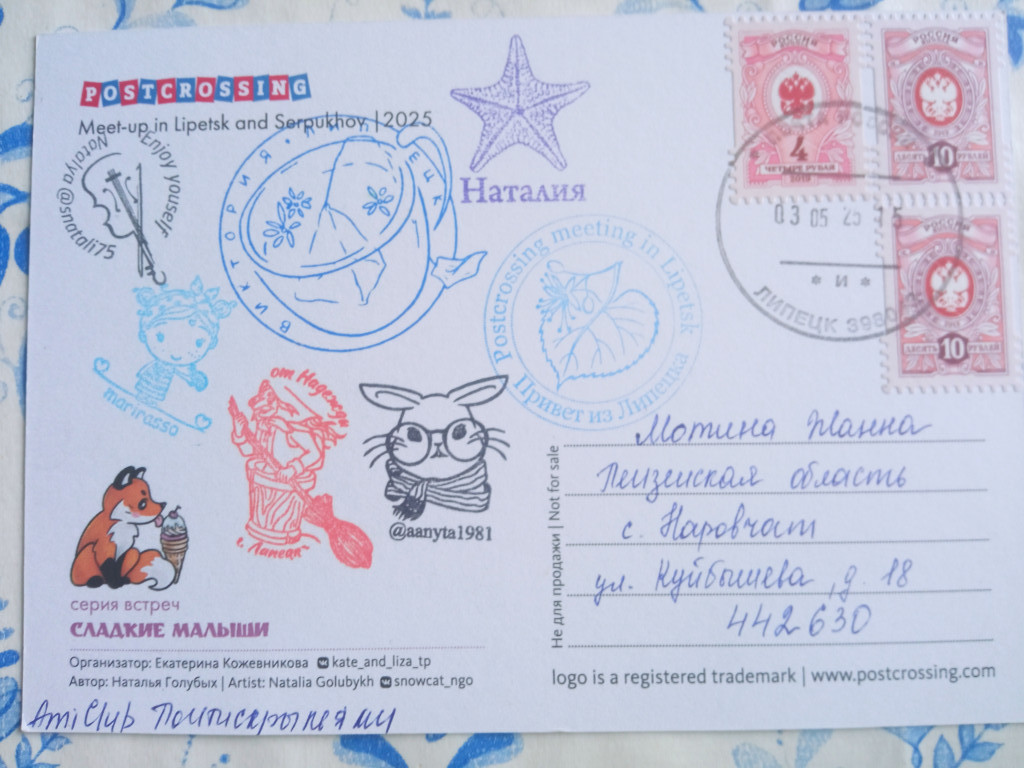 POSTCROSSING
Meet-up in Lipetsk and Serpukhov | 2025
Enjoy youself
Natalya@snatali75
ВИКТОРИЯ
Наталия
Postcrossing meeting in Lipetsk
Привет из Липецка
marirasso
от Надежды
г. Липецк
@aanyta1981
серия встреч
СЛАДКИЕ МАЛЫШИ
Организатор: Екатерина Кожевникова kate_and_liza_tp
Автор: Наталья Голубых | Artist: Natalia Golubykh snowcat_ngo
AmiClub
РОССИЯ
4
ЧЕТЫРЕ РУБЛЯ
2019
РОССИЯ
ДЕСЯТЬ 10 РУБЛЕЙ
РОССИЯ
ДЕСЯТЬ 10 РУБЛЕЙ
03 05 25
* и *
ЛИПЕЦК
Не для продажи | Not for sale
Мотина Жанна
Пензенская область
с. Наровчат
ул. Куйбышева, д. 18
442630
logo is a registered trademark | www.postcrossing.com